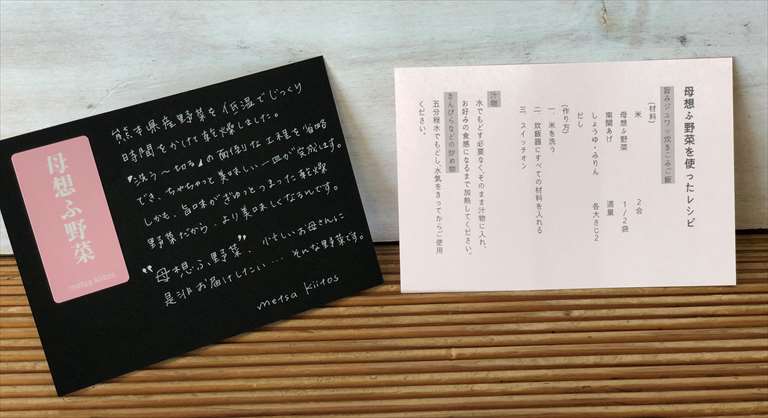 母想ふ野菜
metsa kiitos
熊本県産野菜を低温でじっくり
時間をかけて乾燥しました。
"洗う〜切る"の面倒な工程を省略
でき、ちゃちゃっと美味しい一皿が完成します。
しかも、旨味がぎゅっとつまった乾燥
野菜だから、より美味しくなるんです。
"母想ふ野菜"、忙しいお母さんに
是非お届けしたい... そんな野菜です。
metsa kiitos
母想ふ野菜を使ったレシピ
旨みジュワッ炊きこみご飯
(材料)
米 2合
母想ふ野菜 1/2袋
南関あげ 適量
しょうゆ・みりん 各大さじ2
だし
(作り方)
一、米を洗う
二、炊飯器にすべての材料を入れる
三、スイッチオン
汁物
水でもどす必要なく、そのまま汁物に入れ、
お好みの食感になるまで加熱してください。
きんぴらなどの炒め物
五分程水でもどし、水気をきってからご使用
ください。